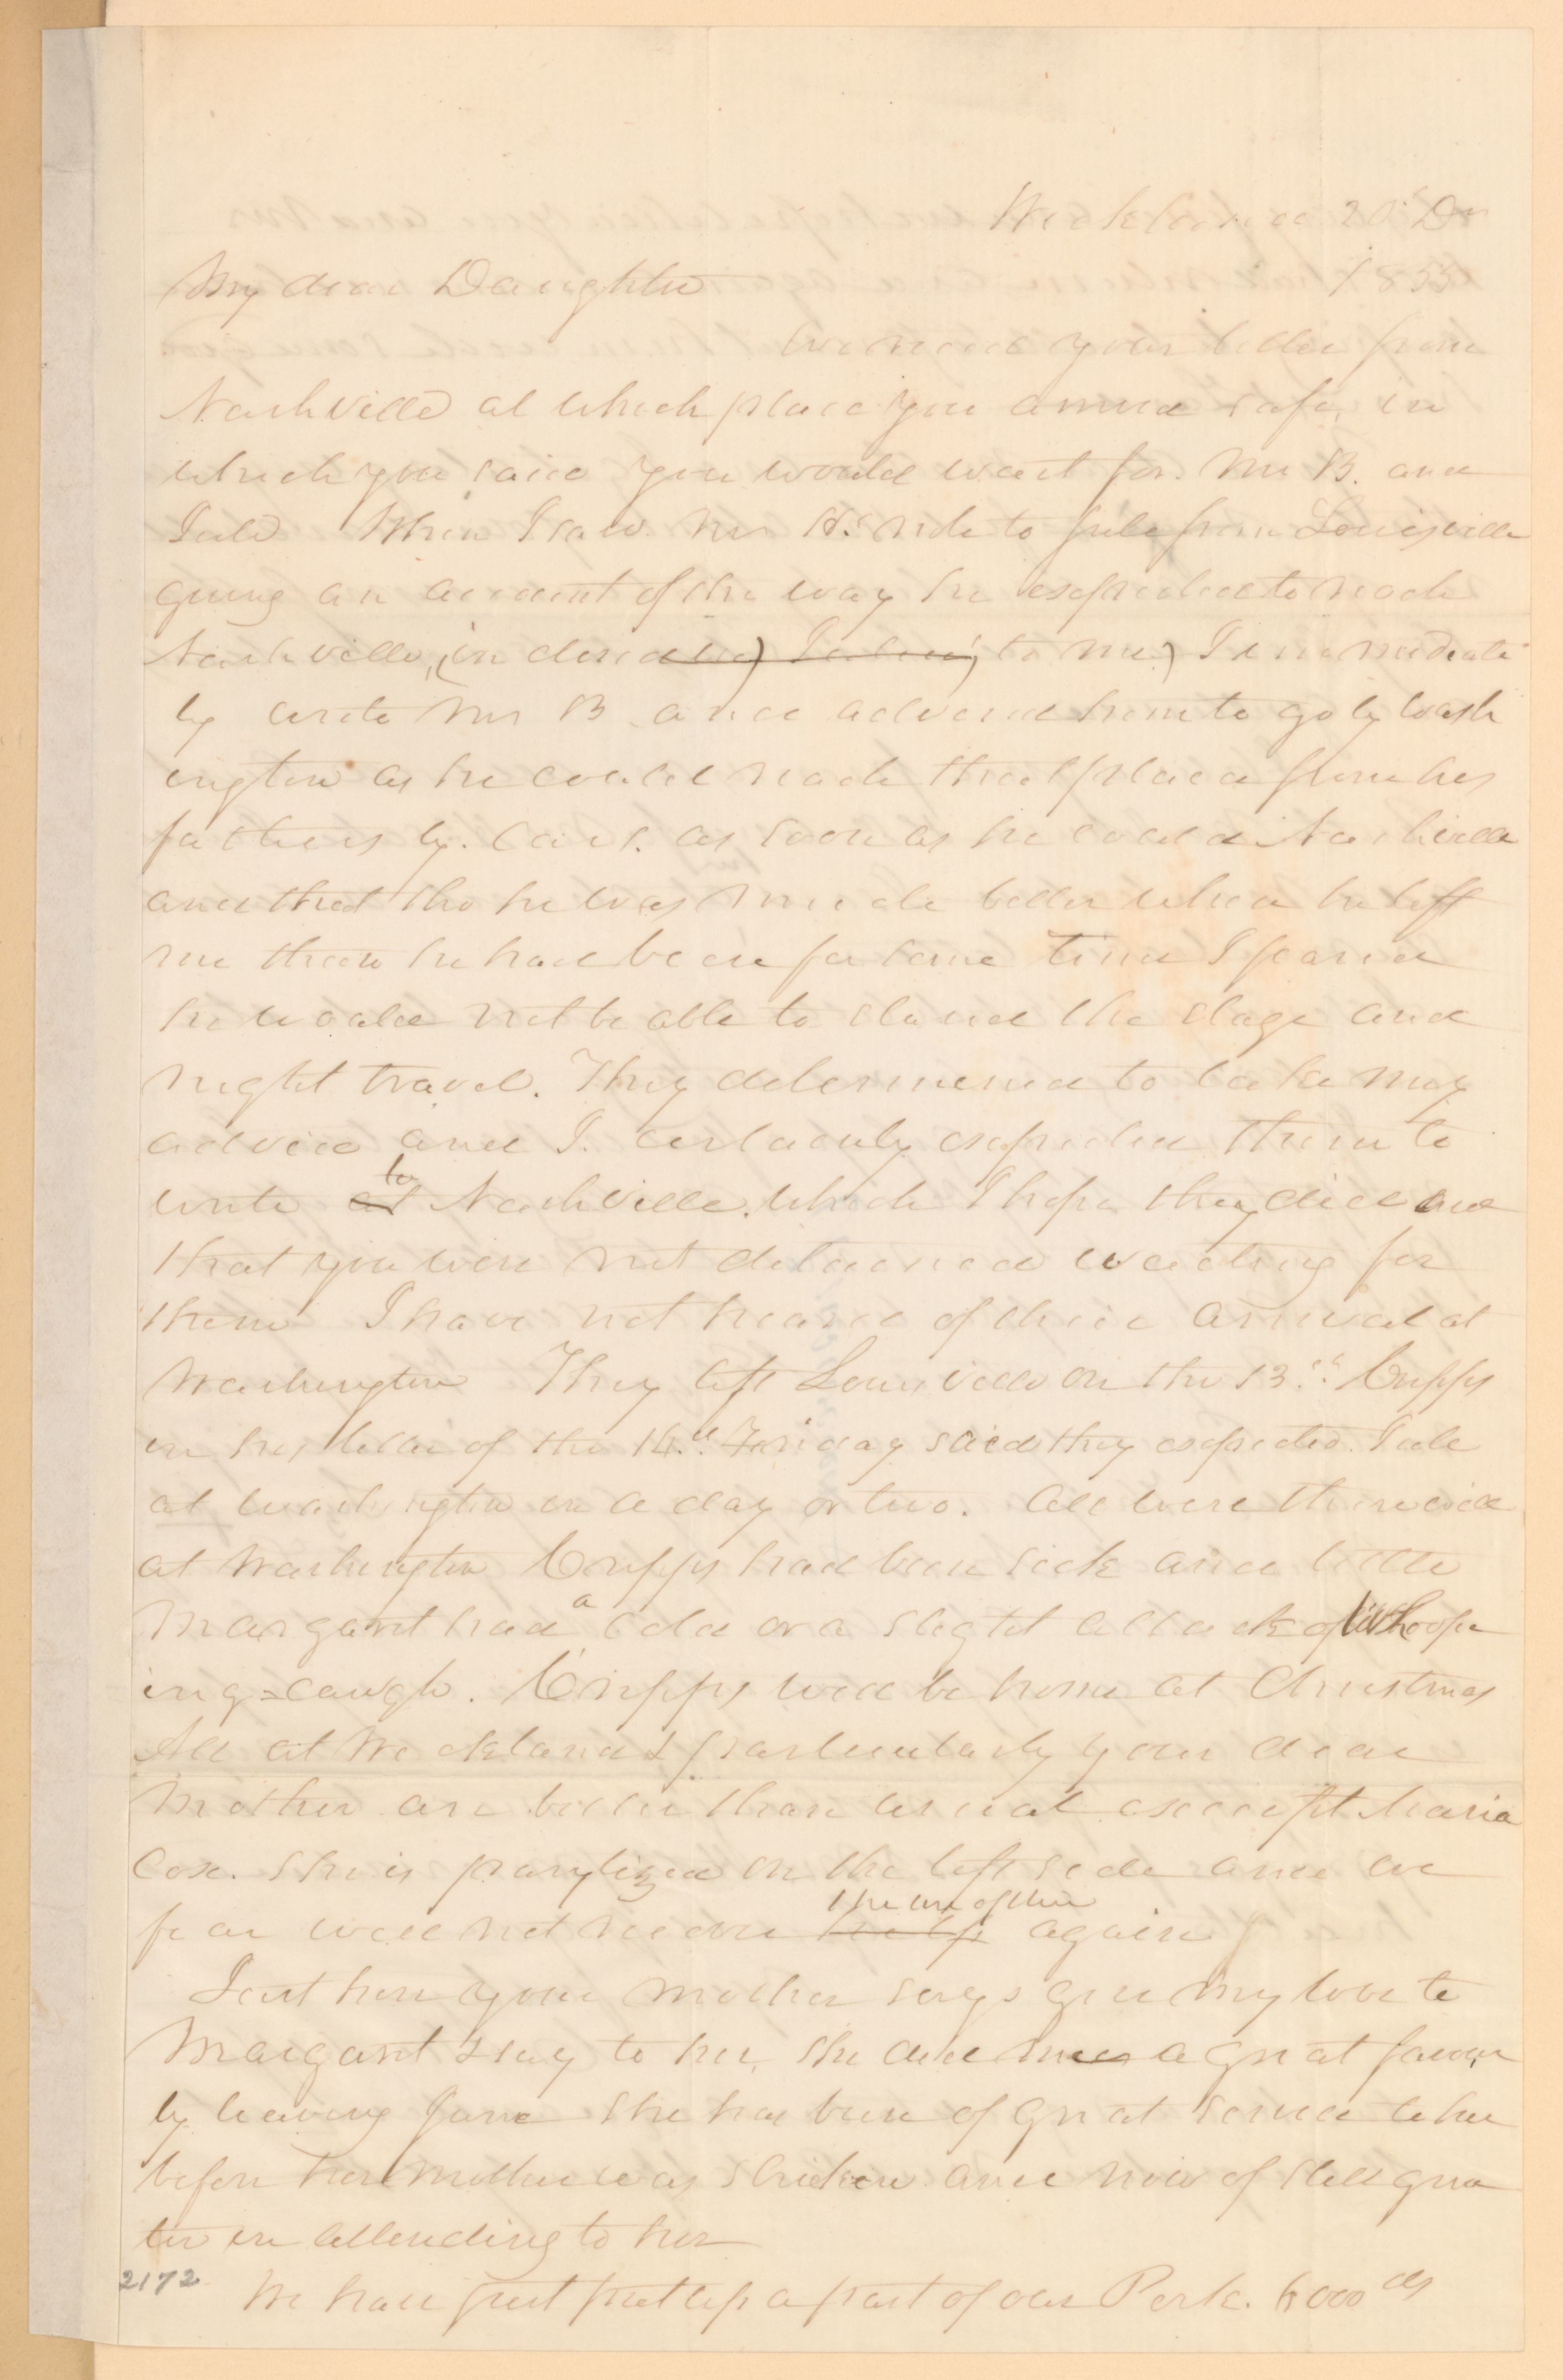 Wickland 20th Dec
1855
My dear Daughter
we received your letter from
Nashville at which place you arrived safe, in
which you said you would wait for Mr B. and
Tule When I saw Mr H's note to Jule from Louisville
giving an account of the way he expected to reach
Nashville, (in to me) I immediate
ly wrote Mr B and advised him to go by Wash
ington as he could reach that place from his
fathers by Cars. as soon as he could Nashville
and that tho he was much better when he left
me than he had been for some time I feared
he would not be able to stand the stage and
night travel. They determined to take my
advice and I certainly expected them to
write at to Nashville. which I hope they did and
that you were not detained waiting for
them I have not heard of their arrival at
Washington They left Louisville on the 13th Cripps
in his letter of the 14th Friday said they expected Tule
at Washington in a day or two. All were then well
at Washington Cripps had been sick and little
Margaret had a cold or a slight attack of Whoop
ing=cough. Cripps will be home at Christmas
All at Wickland & particularly your dear
Mother are better than usual exceept Maria
Cox. She is parylized on the left side and we
fear will not recover the use of her again
Just here your mother says give my love to
Margaret & say to her, she did me a great favour
by leaving Jane She has been of great service
before her mother was stricken and now of still grea
ter in attending to her
2172 We have just put up a part of our Pork. 6000 lbs